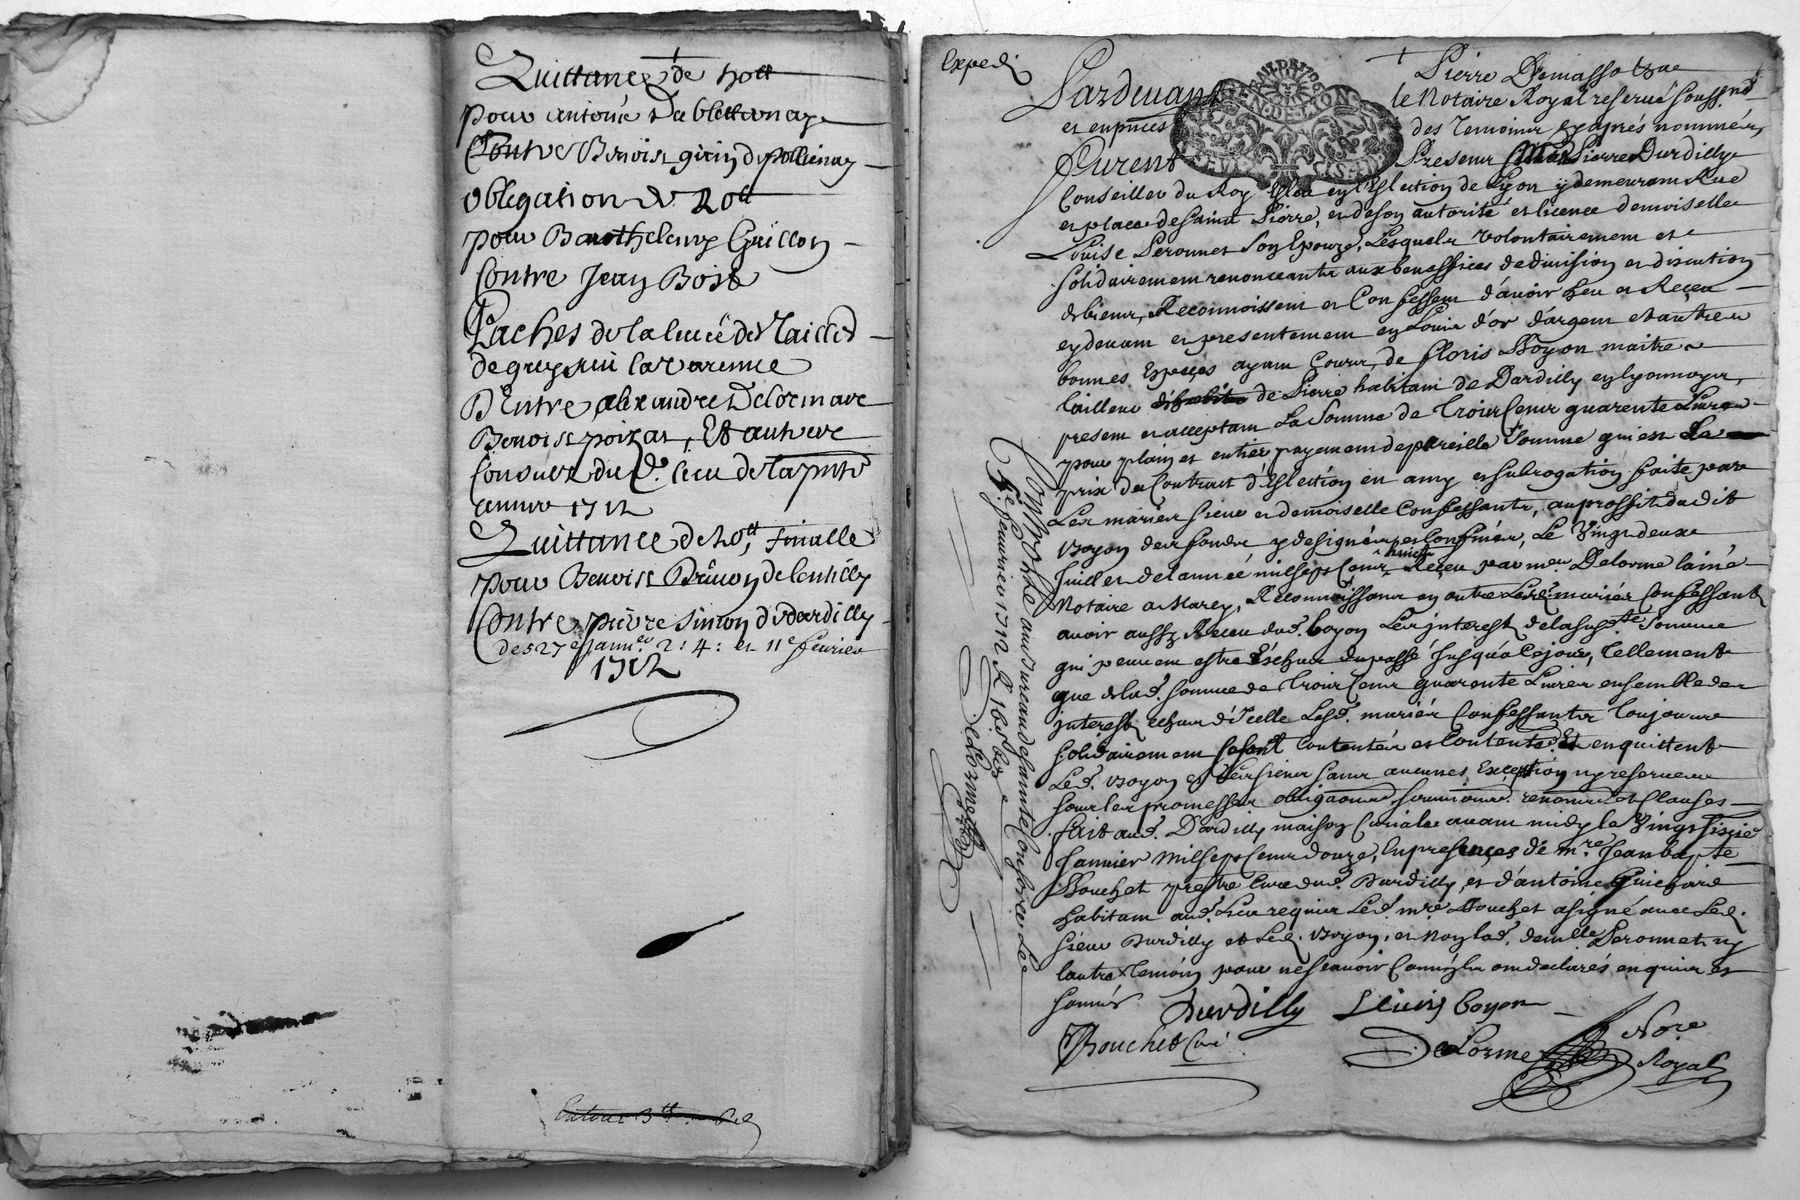 Quittance de
pour antoine
Contre Benoist girin de pollienay
obligation de 20tt
pour Barthelemy Guillon
Contre Jean Bost
Baches de la levée des Tailles
de grezieu la Varenne
Entre alexandre Delorme avec
Benoist poizat, Et autres
Consuls du d. lieu de la pnte
année 1712
Quittance de tt finalle
pour Benoist de lentilly
Contre pierre simon de dardilly
des 27e janu.er 2: 4: et 11e feurier
1712
Expedi
Pardeuant Pierre
le Notaire Royal reserué soussné
et en pnces des Temoins cy apres nommés
Furent Presents Pierre Durdilly
Conseiller du Roy Esleu en l'Eslection de Lyon y demeurant Rue
et place de saint Pierre, et de son autorité et licence demoiselle
Louise Peronnet son Epouze, Lesquels volontairement et
solidairement renonceants aux beneffices de diuision et discution
de biens, Reconnoissent et Confessent d'auoir heu et Receu
cy deuant et presentement en Louis d'or d'argent et autres
bonnes Especes ayant Cours, de floris Boyon maitre
tailleur de Pierre habitant de Dardilly en lyonnois,
present et acceptant La Somme de Trois Cent quarente Liures
pour plain et entier payement de pareille somme qui est Le
prix du Contract d'Eslection en amy et subrogation faite par
Les mariés sieur et demoiselle Confessants, au proffit du dit
Boyon des fonds y designés et Confinés, Le Vingt deux
Juillet de l'année mil sept Cent huict Receu par me Delorme l'ainé
Notaire a Marcy, Reconnoissant en outre Lesd. mariés Confessants
auoir aussy Receu dud. boyon Les interest de la susd.te somme
qui peuuent estre Echeus du passé Jusqu'a Ce jour, Tellement
que de lad. somme de Trois Cent quarente Liures ensemble des
interest echeus d'Icelle Lesd. mariés Confessants Toujours
solidairement sesont Contentés et Contents Et en quittent
Led. Boyon et Les siens sans aucunes Exception ny reserues
sous les promesses obligaons soumions renonciaons et Clauses
fait aud. Dardilly maison Curiale auant midy le Vingt sixie
Januier mil sept Cent douze, En presences de mre Jean bapte
Bouchet prestre Curé dud. Dardilly, et d'antoine Guichard
habitant aud. Lieu requis Led. mre Bouchet a signé auec Led.
sieur Durdilly et Led. Boyon, et Non lad. demlle Peronnet ny
l'autre Temoin pour ne scauoir Comm'ils ont declarés enquis et
sommés
Durdilly Boyon
Bouchet Curé
DeLorme Nore
Royal
Controllé au Bureau de sainte Consorce Le
feurier 1712
Delorme